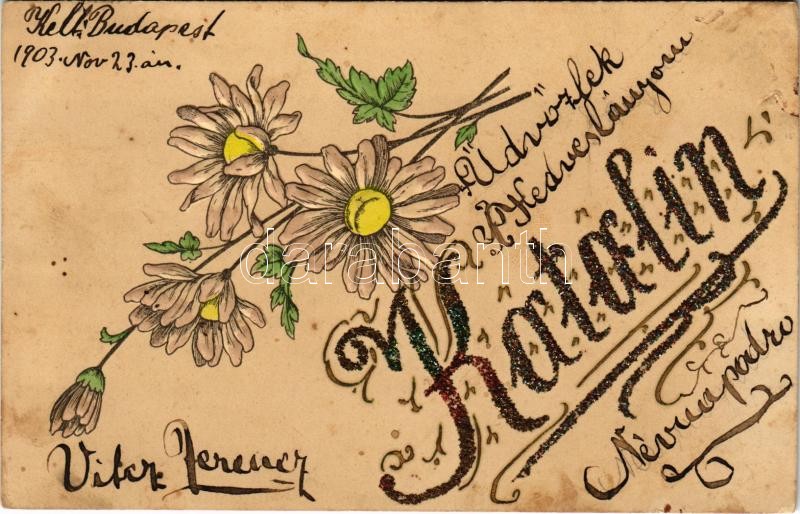 Kelt: Budapest
1903. Nov 23. án.
„Üdvözlek"
Kedves lányom
Katalin
Névnapodra
Vitéz Ferencz
darabanth